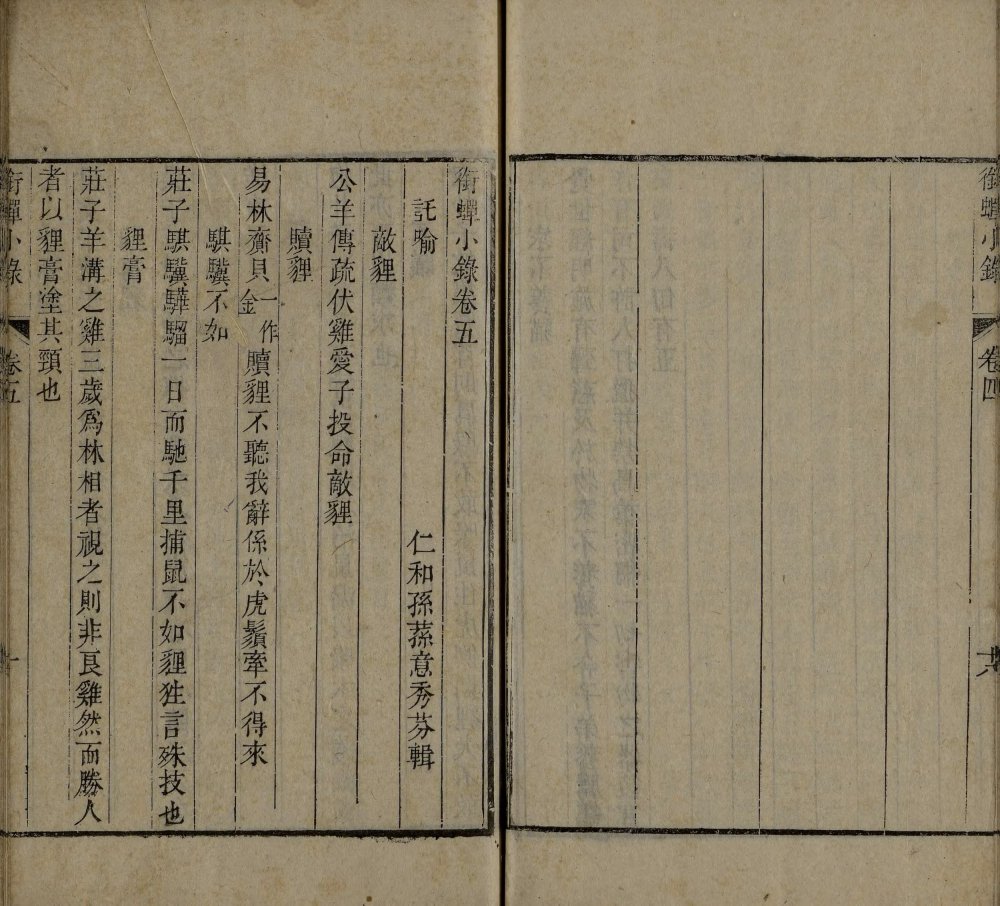 銜蟬小錄
卷四
銜蟬小錄卷五
託喻
仁和孫蓀意秀芬輯
敵貍
公羊傳疏伏雞愛子投命敵貍
贖貍
易林齎貝一作金贖貍不聽我辭係於虎鬚牽不得來
騏驥不如
莊子騏驥驊騮一日而馳千里捕鼠不如貍狌言殊技也
貍膏
莊子羊溝之雞三歲爲株相者視之則非良雞然而勝人
者以貍膏塗其頸也
銜蟬小錄
卷五
一